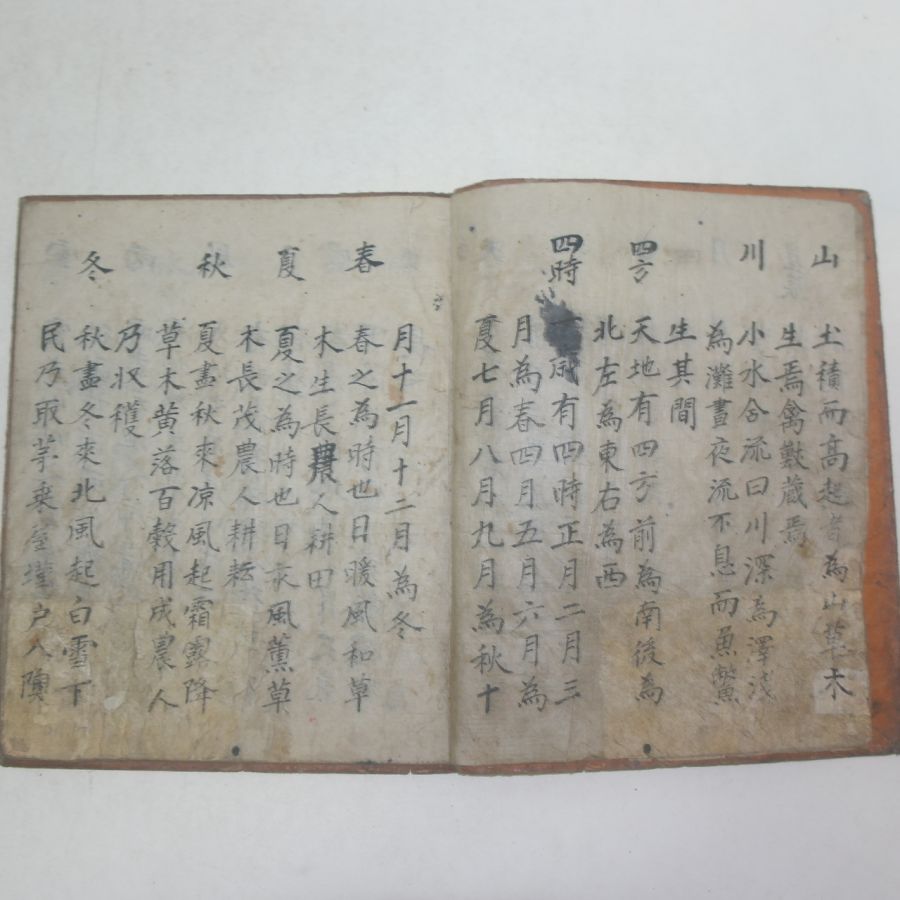 山
土積而高起者為山草木
生焉禽獸蔵焉
川
小水合流曰川深為澤浅
為灘晝夜流不息而魚鱉
生其間
四方
天地有四方前為南後為
北左為東右為西
四時
一歲有四時正月二月三
月為春四月五月六月為
夏七月八月九月為秋十
月十一月十二月為冬
春
春之為時也日暖風和草
木生長農人耕田
夏
夏之為時也日風薰草
木長茂農人耕耘
秋
夏盡秋來凉風起霜露降
草木黄落百穀用成農人
乃收穫
冬
秋盡冬來北風起白雪下
民乃取茅乗屋墐戶入隩